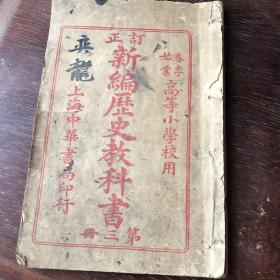 訂正
春季始業
高等小學校用
新編歷史教科書
第三冊
上海中華書局印行